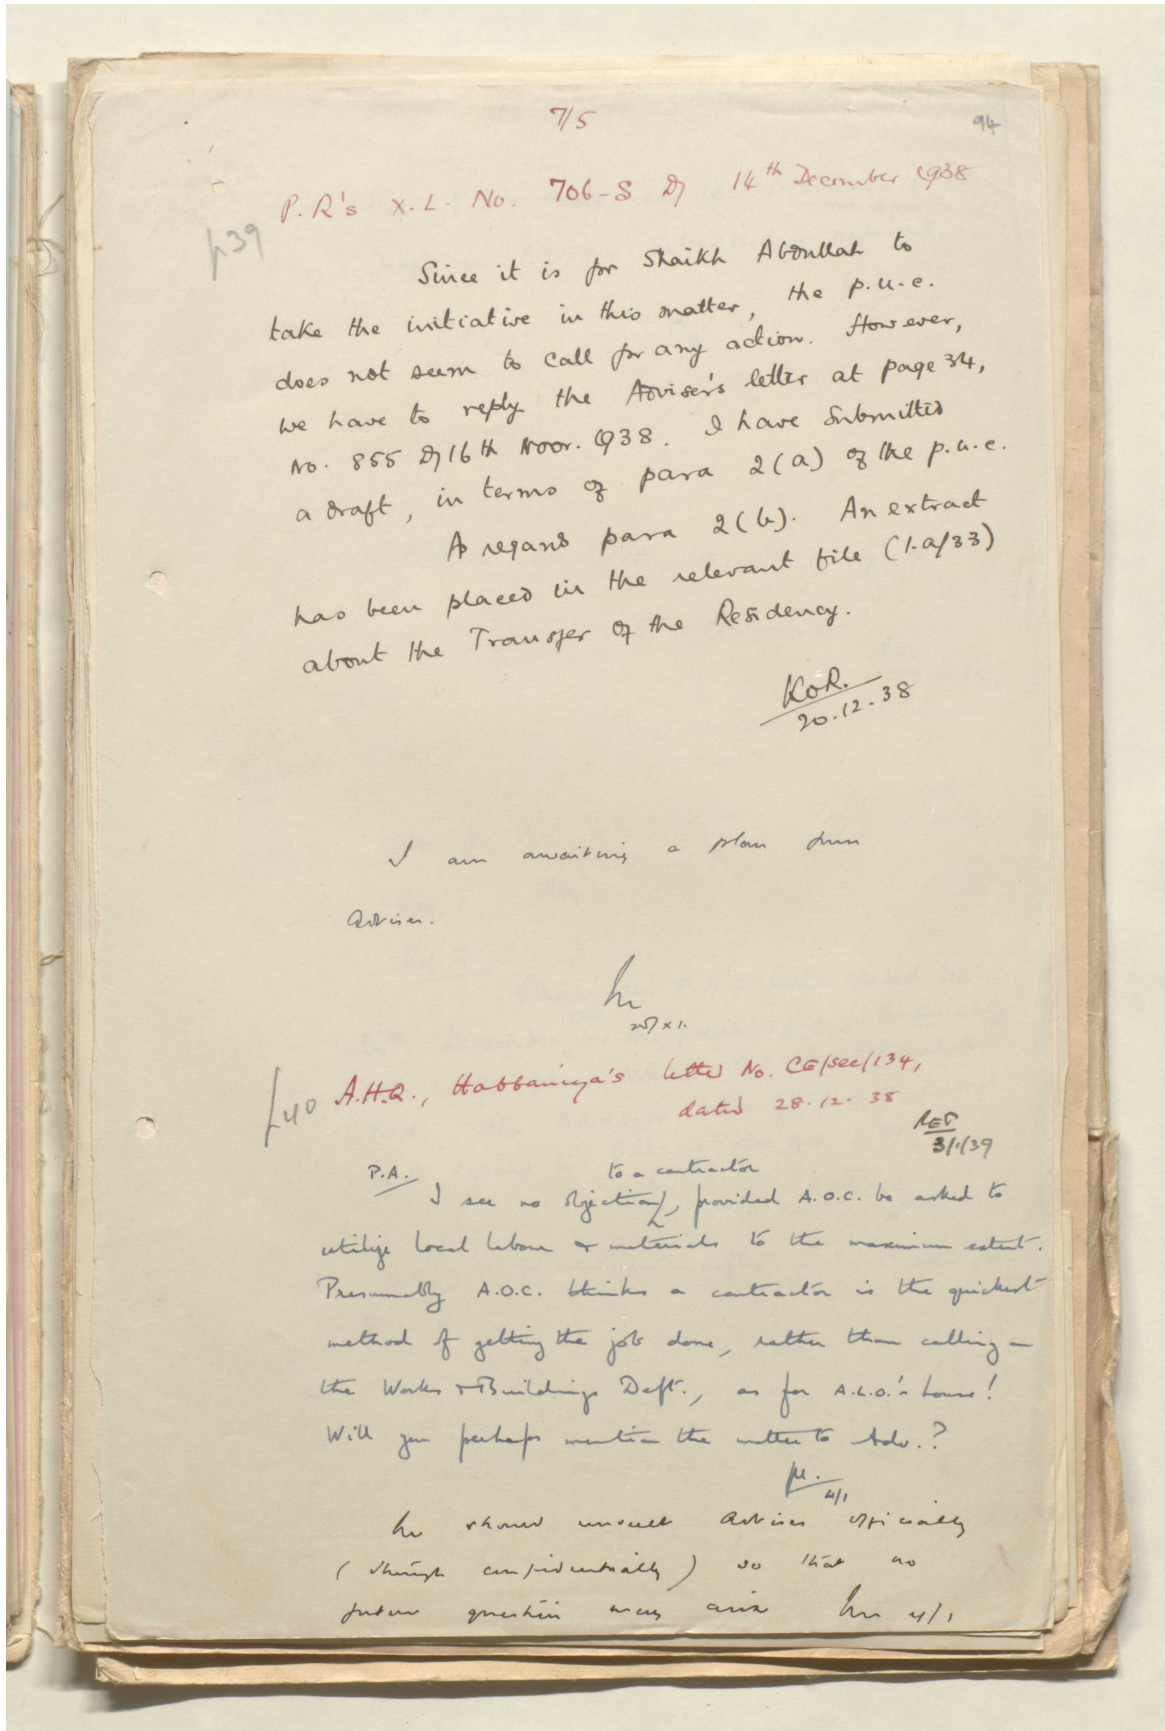 7/5
94
P.R's X.L. No. 706-S D/ 14th December 1938
p39
Since it is for Shaikh Abdullah to
take the initiative in this matter, the p.u.c.
does not seem to call for any action. However,
we have to reply the Adviser's letter at page 34,
No. 855 D/ 16th Novr. 1938. I have submitted
a draft, in terms of para 2(a) of the p.u.c.
As regards para 2(b). An extract
has been placed in the relevant file (1.a/33)
about the Transfer of the Residency.
20.12.38
I am awaiting a plan from
Adviser.
p40
A.H.Q., Habbaniya's letter No. CE/Sec/134,
dated 28.12.38
3/1/39
P.A.
to a contractor
I see no objection, provided A.O.C. be asked to
utilize local labour & materials to the maximum extent.
Presumably A.O.C. thinks a contractor is the quickest
method of getting the job done, rather than calling in
the Works & Buildings Deptt., as for A.L.O.'s house!
Will you perhaps mention the matter to Adv.?
4/1
We should consult Adviser officially
(though confidentially) so that no
future question may arise
4/1